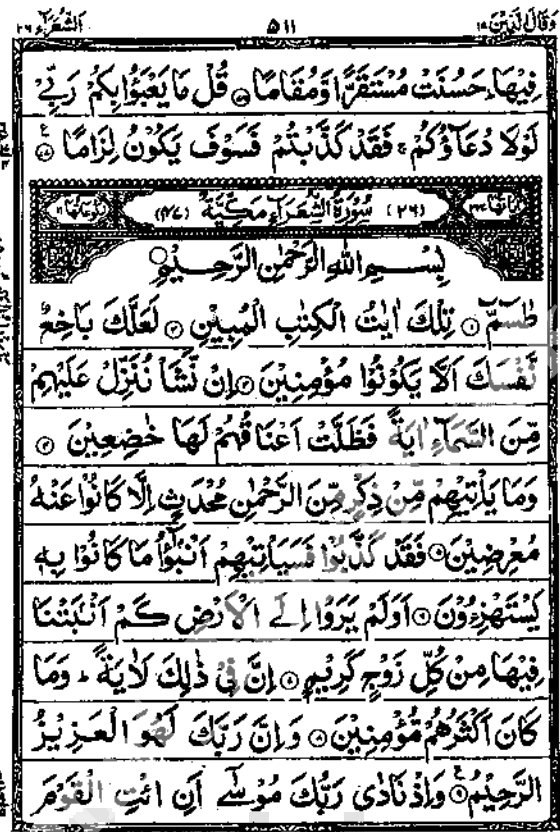 وَقَالَ الَّذِيْنَ ١٩ ٥١١ الشُّعَرَآء ٢٦
فِيْهَا ؕ حَسُنَتْ مُسْتَقَرًّا وَّمُقَامًا ۝ قُلْ مَا يَعْبَؤُا بِكُمْ رَبِّيْ
لَوْلَا دُعَآؤُكُمْ ۚ فَقَدْ كَذَّبْتُمْ فَسَوْفَ يَكُوْنُ لِزَامًا ۝
(٢٦) سُوْرَةُ الشُّعَرَآءِ مَكِّيَّةٌ (٤٧)
بِسْمِ اللّٰهِ الرَّحْمٰنِ الرَّحِيْمِ
طٰسٓمّٓ ۝ تِلْكَ اٰيٰتُ الْكِتٰبِ الْمُبِيْنِ ۝ لَعَلَّكَ بَاخِعٌ
نَّفْسَكَ اَلَّا يَكُوْنُوْا مُؤْمِنِيْنَ ۝ اِنْ نَّشَاْ نُنَزِّلْ عَلَيْهِمْ
مِّنَ السَّمَآءِ اٰيَةً فَظَلَّتْ اَعْنَاقُهُمْ لَهَا خٰضِعِيْنَ ۝
وَمَا يَاْتِيْهِمْ مِّنْ ذِكْرٍ مِّنَ الرَّحْمٰنِ مُحْدَثٍ اِلَّا كَانُوْا عَنْهُ
مُعْرِضِيْنَ ۝ فَقَدْ كَذَّبُوْا فَسَيَاْتِيْهِمْ اَنْۢبٰٓؤُا مَا كَانُوْا بِهٖ
يَسْتَهْزِءُوْنَ ۝ اَوَلَمْ يَرَوْا اِلَى الْاَرْضِ كَمْ اَنْۢبَتْنَا
فِيْهَا مِنْ كُلِّ زَوْجٍ كَرِيْمٍ ۝ اِنَّ فِيْ ذٰلِكَ لَاٰيَةً ؕ وَمَا
كَانَ اَكْثَرُهُمْ مُّؤْمِنِيْنَ ۝ وَاِنَّ رَبَّكَ لَهُوَ الْعَزِيْزُ
الرَّحِيْمُ ۝ وَاِذْ نَادٰى رَبُّكَ مُوْسٰٓى اَنِ ائْتِ الْقَوْمَ